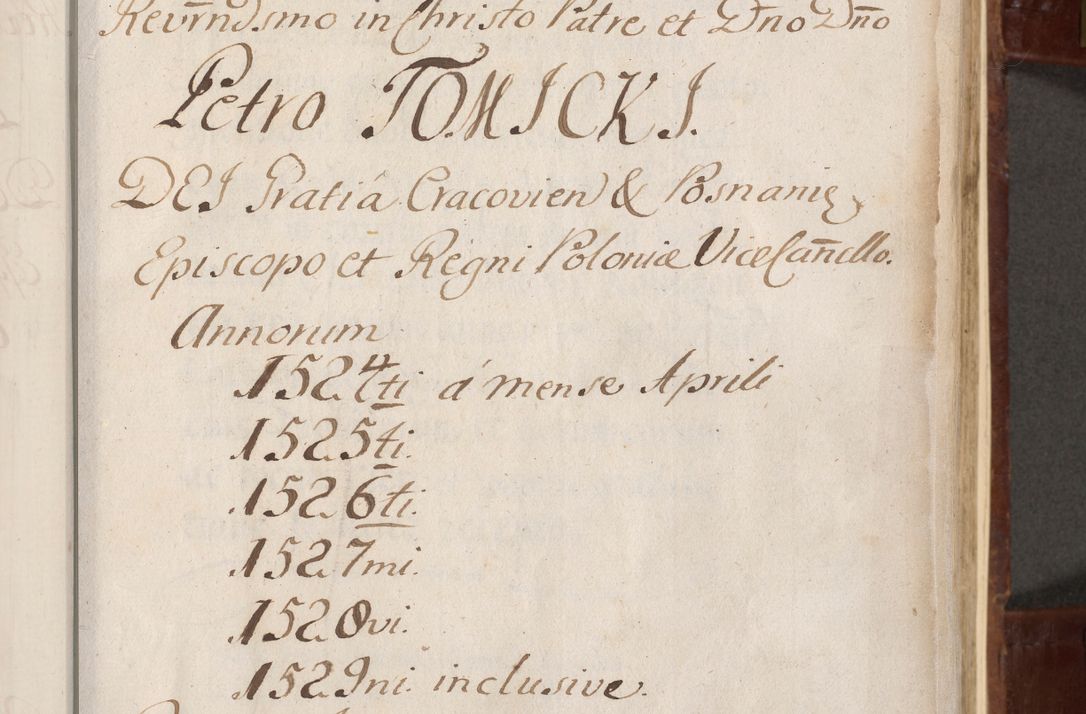 Revrndsmo in Christo Patre et Dno Dño
Petro TOMICKI.
DEI Gratiâ Cracovien & Posnanię
Episcopo et Regni Poloniæ ViceCañcllo.
Annorum
1524ti á mense Aprili
1525ti.
1526ti.
1527mi.
1528vi.
1529ni. inclusive.